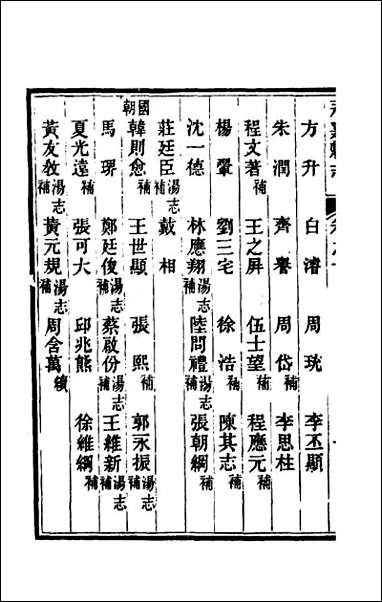 方升 白濬 周珫 李丕顯
朱潤 齊譽 周岱補 李思柱
程文著補 王之屏 伍士望補 程應元補
楊鞏 劉三宅 徐浩補 陳其志補
沈一德 林應翔湯志補 陸問禮湯志補 張朝綱補
莊廷臣湯志補 戴相
國朝韓則愈補 王世顯 張熙補 郭永振湯志補
馬琾 鄭廷俊湯志補 蔡啟份湯志補 王維新湯志補
夏光遠補 張可大 邱兆熊 徐維綱補
黃友敎湯志補 黃元規湯志補 周含萬續